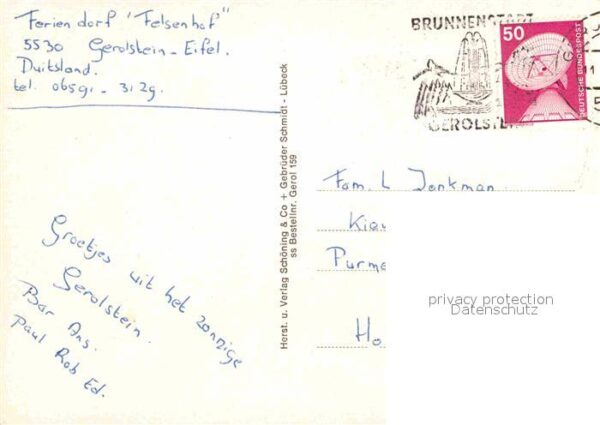 Feriendorf "Felsenhof"
5530 Gerolstein-Eifel.
Duitsland.
tel. 06591-3129.
BRUNNENSTADT
GEROLSTEIN
50
DEUTSCHE BUNDESPOST
Herst. u. Verlag Schöning & Co + Gebrüder Schmidt - Lübeck
ss Bestellnr. Gerol 159
Fam. L Jonkman.
Purme
Ho
privacy protection
Datenschutz
Groetjes uit het zonnige
Gerolstein.
Bar Ans.
Paul Rob Ed.